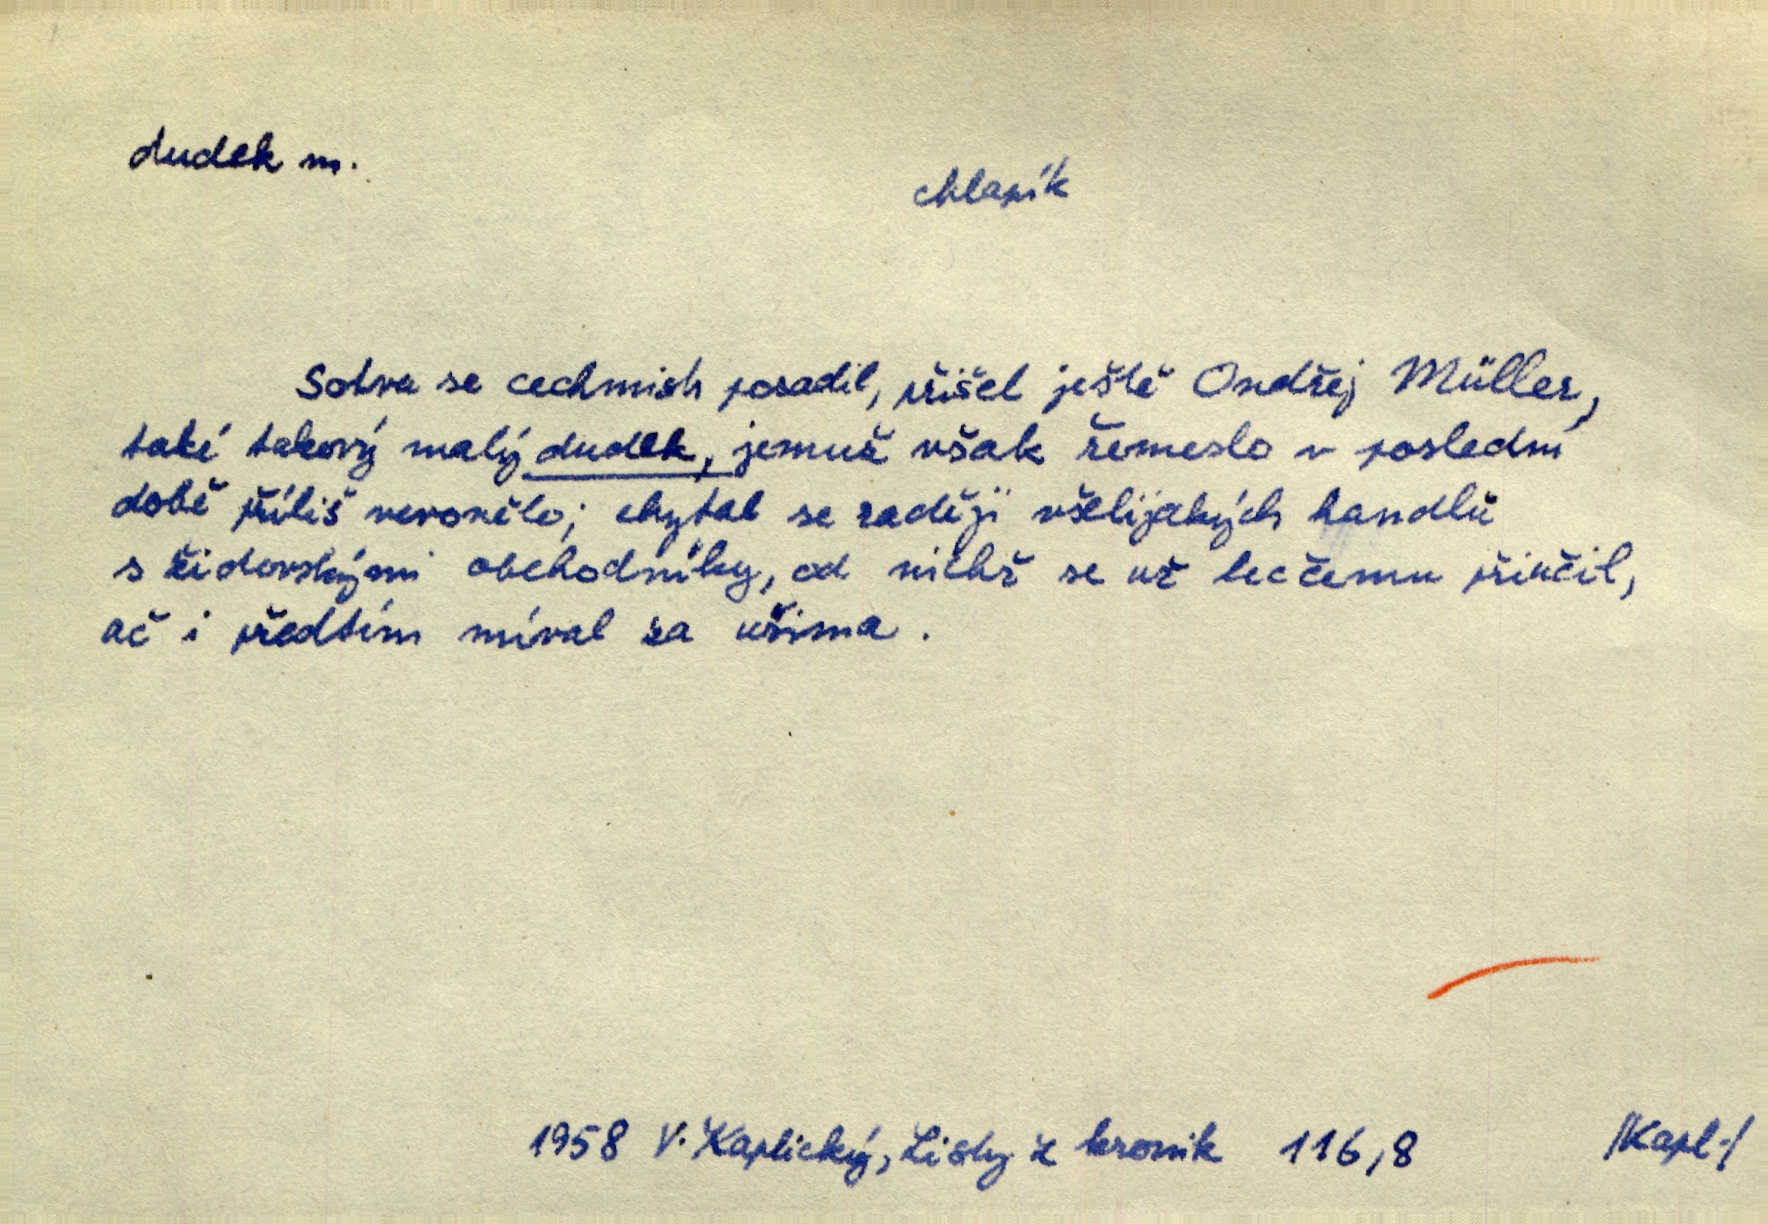 dudek m.
chlapík
Sotva se cechmistr posadil, přišel ještě Ondřej Müller,
také takový malý dudek, jemuž však řemeslo v poslední
době příliš nevonělo; chytal se raději všelijakých handlů
s židovskými obchodníky, od nichž se už lecčemu přiučil,
ač i předtím míval za ušima.
1958 V. Kaplický, Listy z kronik 116,8 /Kapl-/